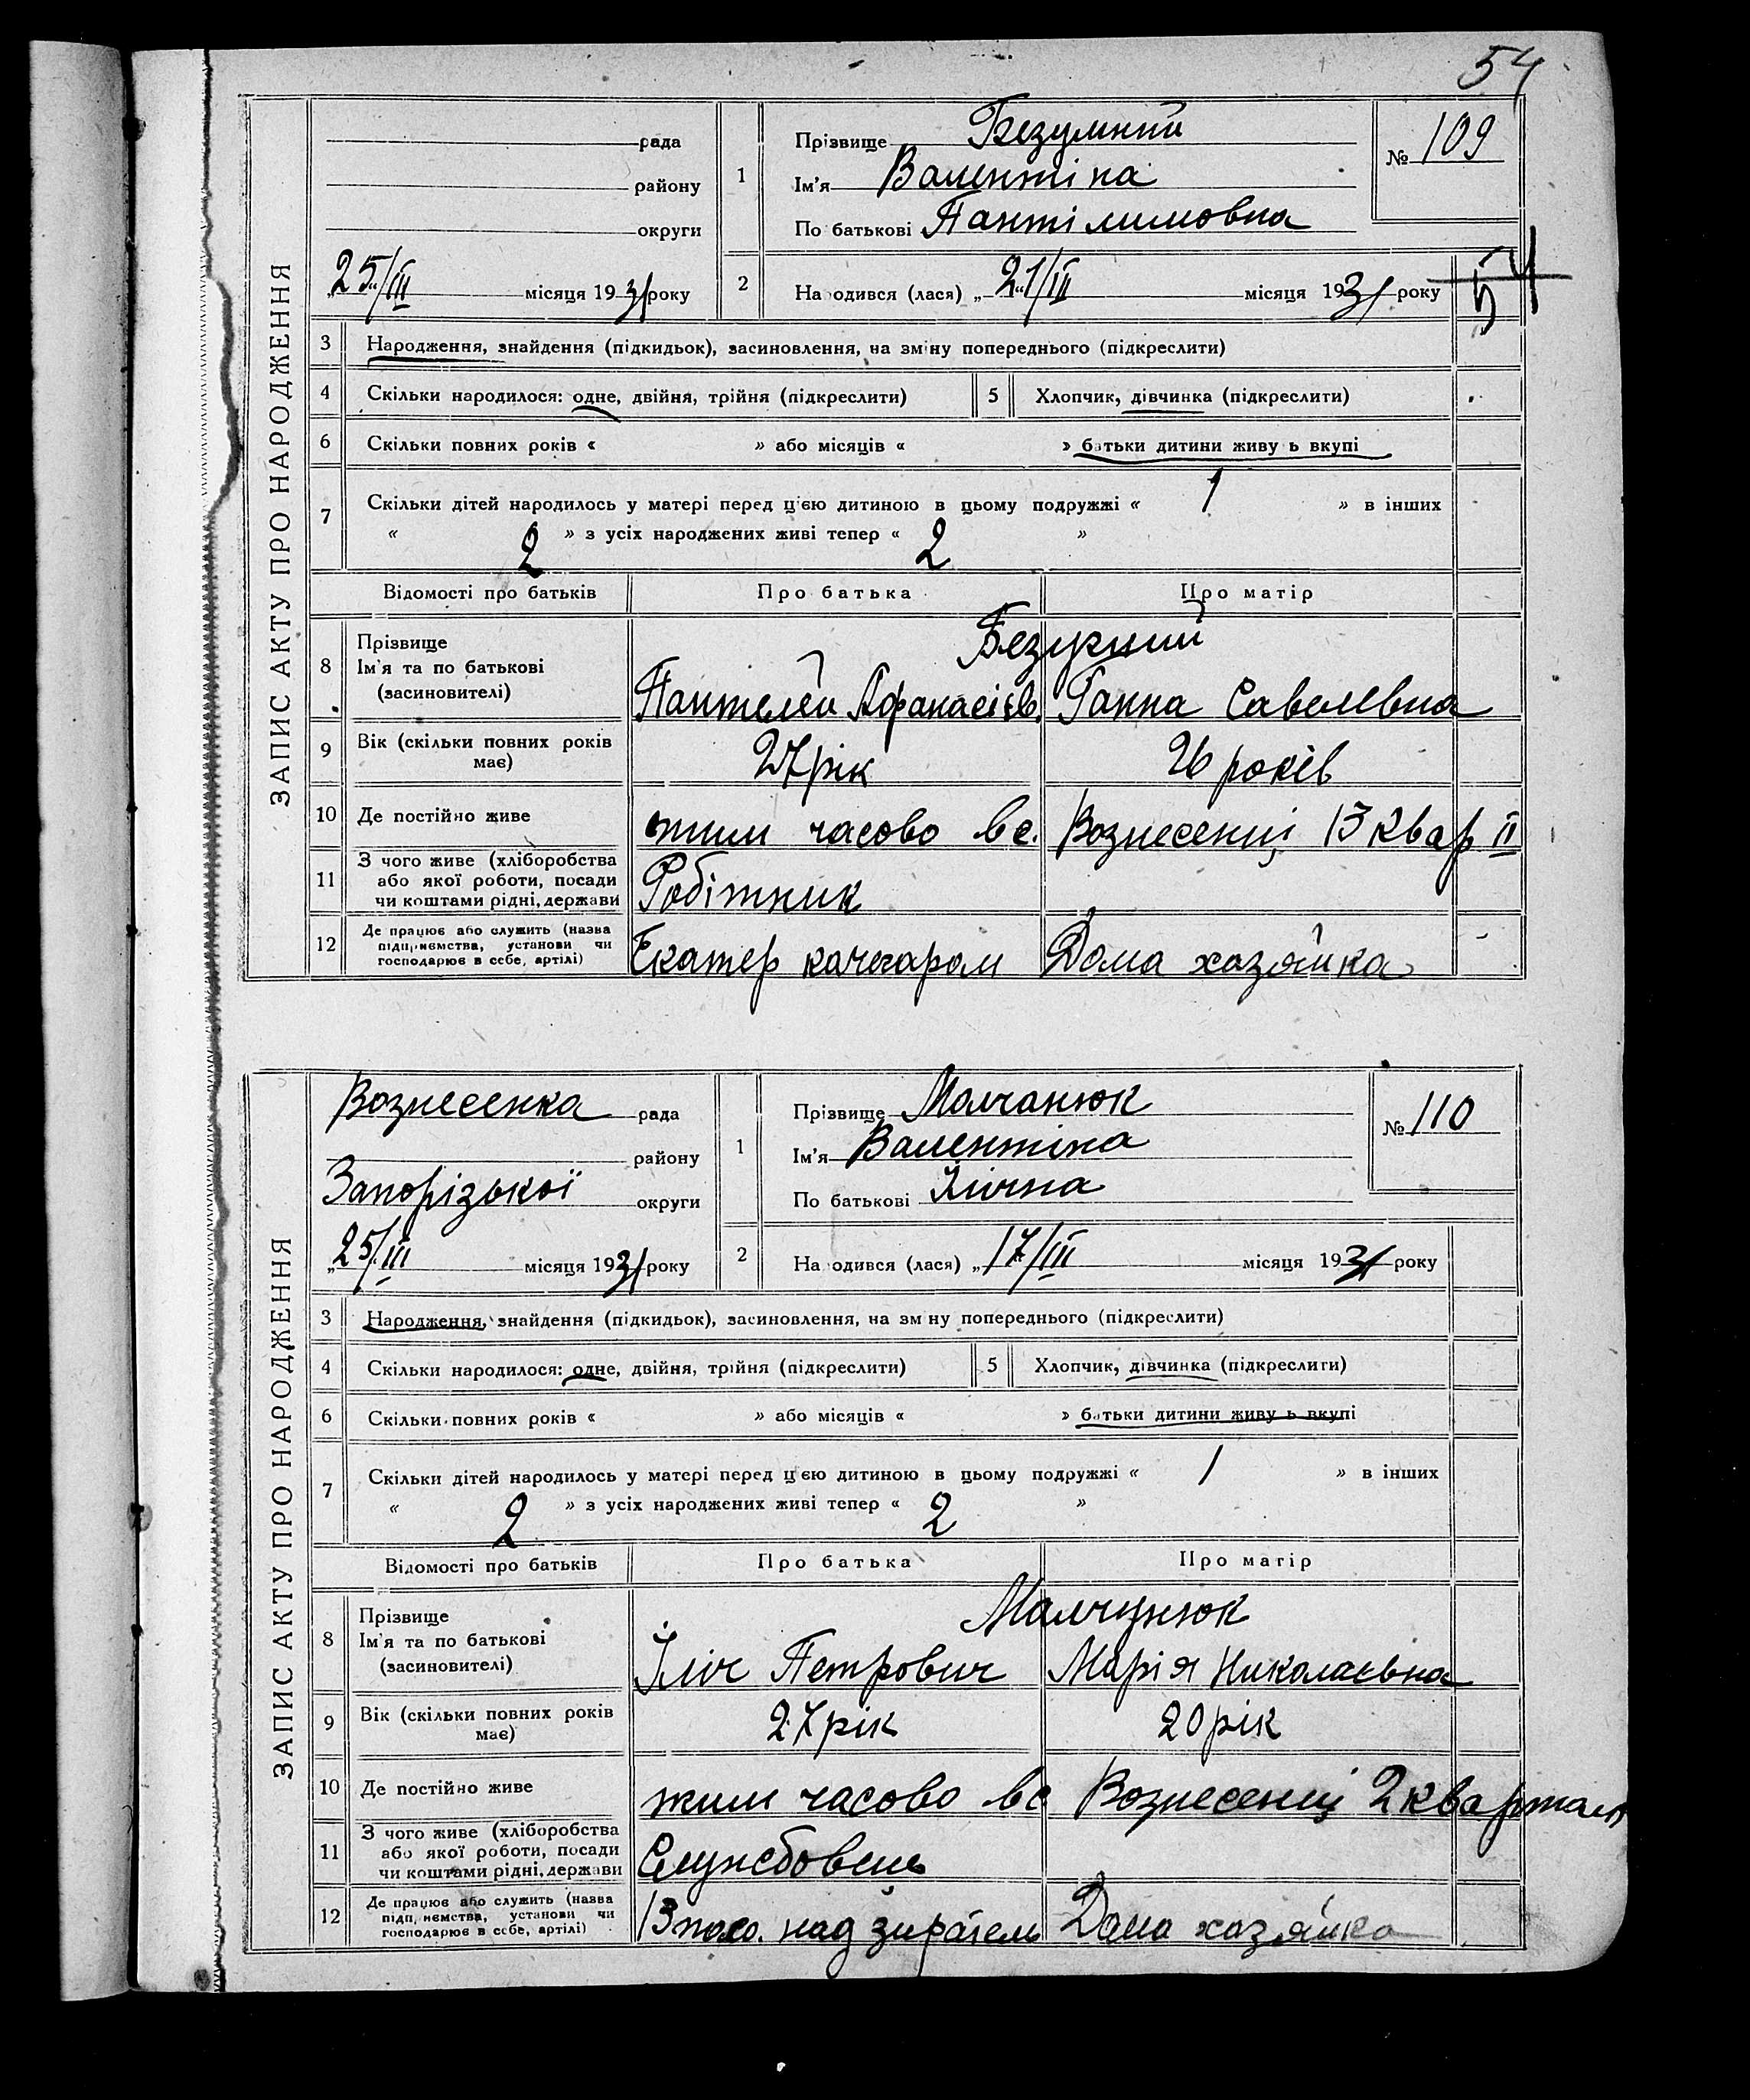 54
ЗАПИС АКТУ ПРО НАРОДЖЕННЯ
рада
району
округи
„25/III місяця 1931 року
1
Прізвище Безумний
Ім'я Валентіна
По батькові Пантілимовна
№ 109
2
На одився (лася) „21/III місяця 1931 року
54
3 Народження, знайдення (підкидьок), засиновлення, на зміну попереднього (підкреслити)
4 Скільки народилося: одне, двійня, трійня (підкреслити)
5 Хлопчик, дівчинка (підкреслити)
6 Скільки повних років « » або місяців « » батьки дитини живу ь вкупі
7 Скільки дітей народилось у матері перед ц'єю дитиною в цьому подружжі « 1 » в інших
« 2 » з усіх народжених живі тепер « 2 »
Відомості про батьків Про батька Про матір
8 Прізвище
Ім'я та по батькові
(засиновителі)
Безумний
Пантелей Афанасієв. Ганна Савелевна
9 Вік (скільки повних років
має)
27 рік 26 років
10 Де постійно живе
тим часово в с. Вознесенці 13 квар II
11 З чого живе (хліборобства
або якої роботи, посади
чи коштами рідні, держави
Робітник
12 Де працює або служить (назва
підприємства, установи чи
господарює в себе, артілі)
Екатер качегаром Дома хазяйка
ЗАПИС АКТУ ПРО НАРОДЖЕННЯ
Вознесенка рада
району
Запорізької округи
„25/III місяця 1931 року
1
Прізвище Молчанюк
Ім'я Валентіна
По батькові Ілічна
№ 110
2
На одився (лася) „17/III місяця 1931 року
3 Народження, знайдення (підкидьок), засиновлення, на зм ну попереднього (підкреслити)
4 Скільки народилося: одне, двійня, трійня (підкреслити)
5 Хлопчик, дівчинка (підкреслити)
6 Скільки повних років « » або місяців « » батьки дитини живу ь вкупі
7 Скільки дітей народилось у матері перед ц'єю дитиною в цьому подружжі « 1 » в інших
« 2 » з усіх народжених живі тепер « 2 »
Відомості про батьків Про батька Про матір
8 Прізвище
Ім'я та по батькові
(засиновителі)
Молчунюк
Іліч Петрович Марія Николаєвна
9 Вік (скільки повних років
має)
27 рік 20 рік
10 Де постійно живе
тим часово в с Вознесенці 2 квартал
11 З чого живе (хліборобства
або якої роботи, посади
чи коштами рідні, держави
Службовець
12 Де працює або служить (назва
підп, иємства, установи чи
господарює в себе, артілі)
над зиратель Дома хазяйка